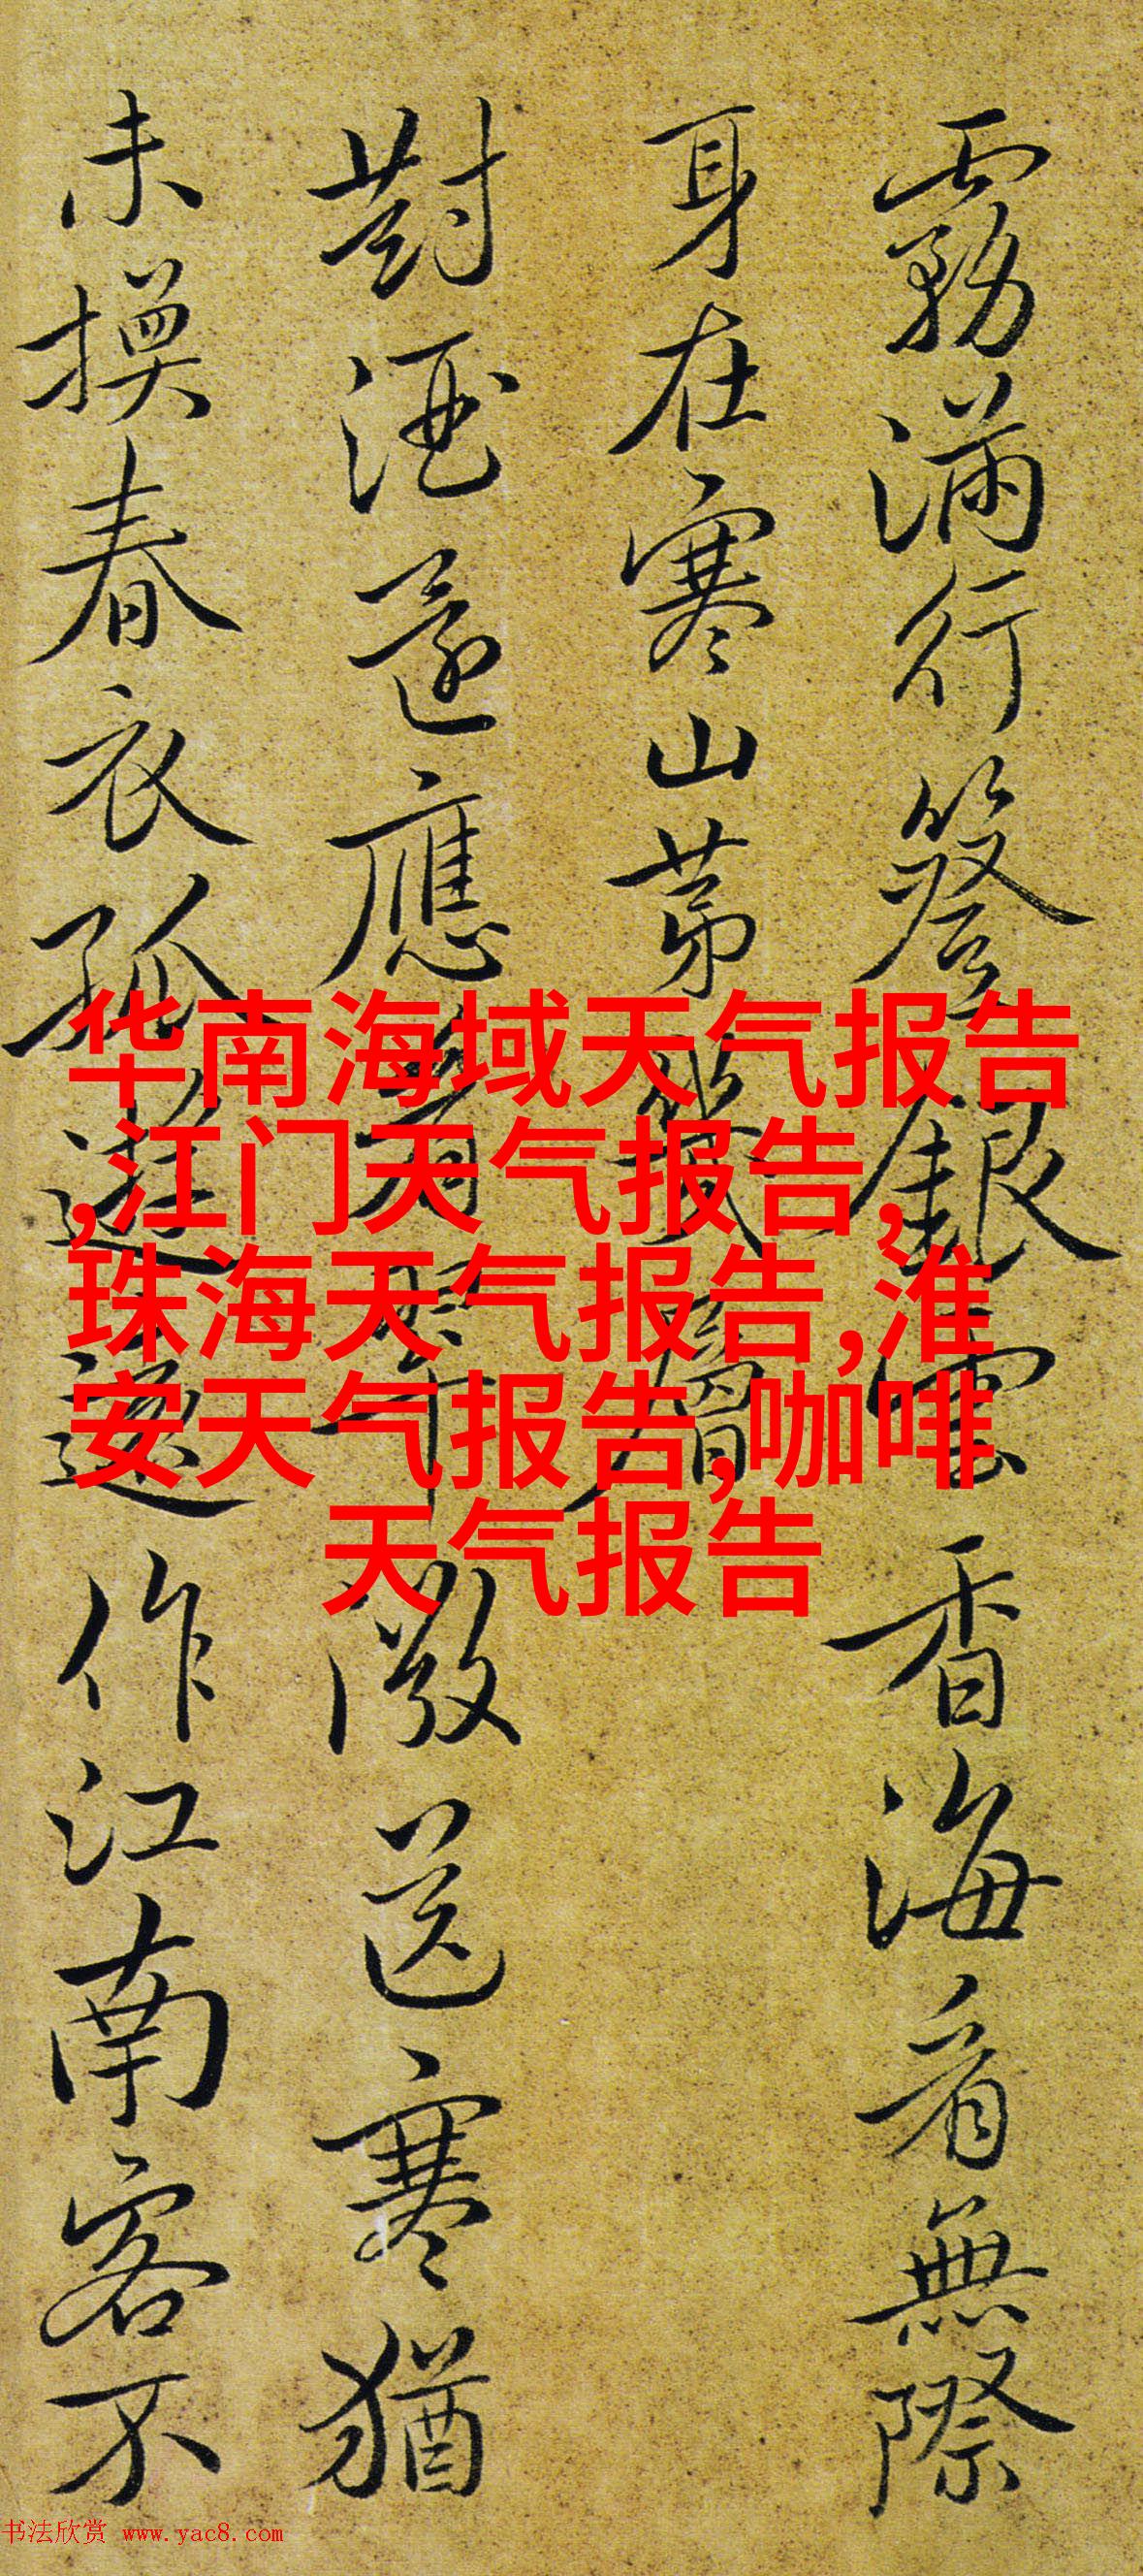 霧滿行簦銀雲香海看無際
身在寒山第幾層
對酒還應 送寒猶
未換春衣孤遊還作江南客不
华南海域天气报告
,江门天气报告,
珠海天气报告,淮
安天气报告,咖啡
天气报告
书法欣赏 www.yac8.com